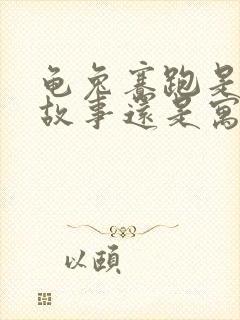 龟兔赛跑是
故事还是寓
以頤